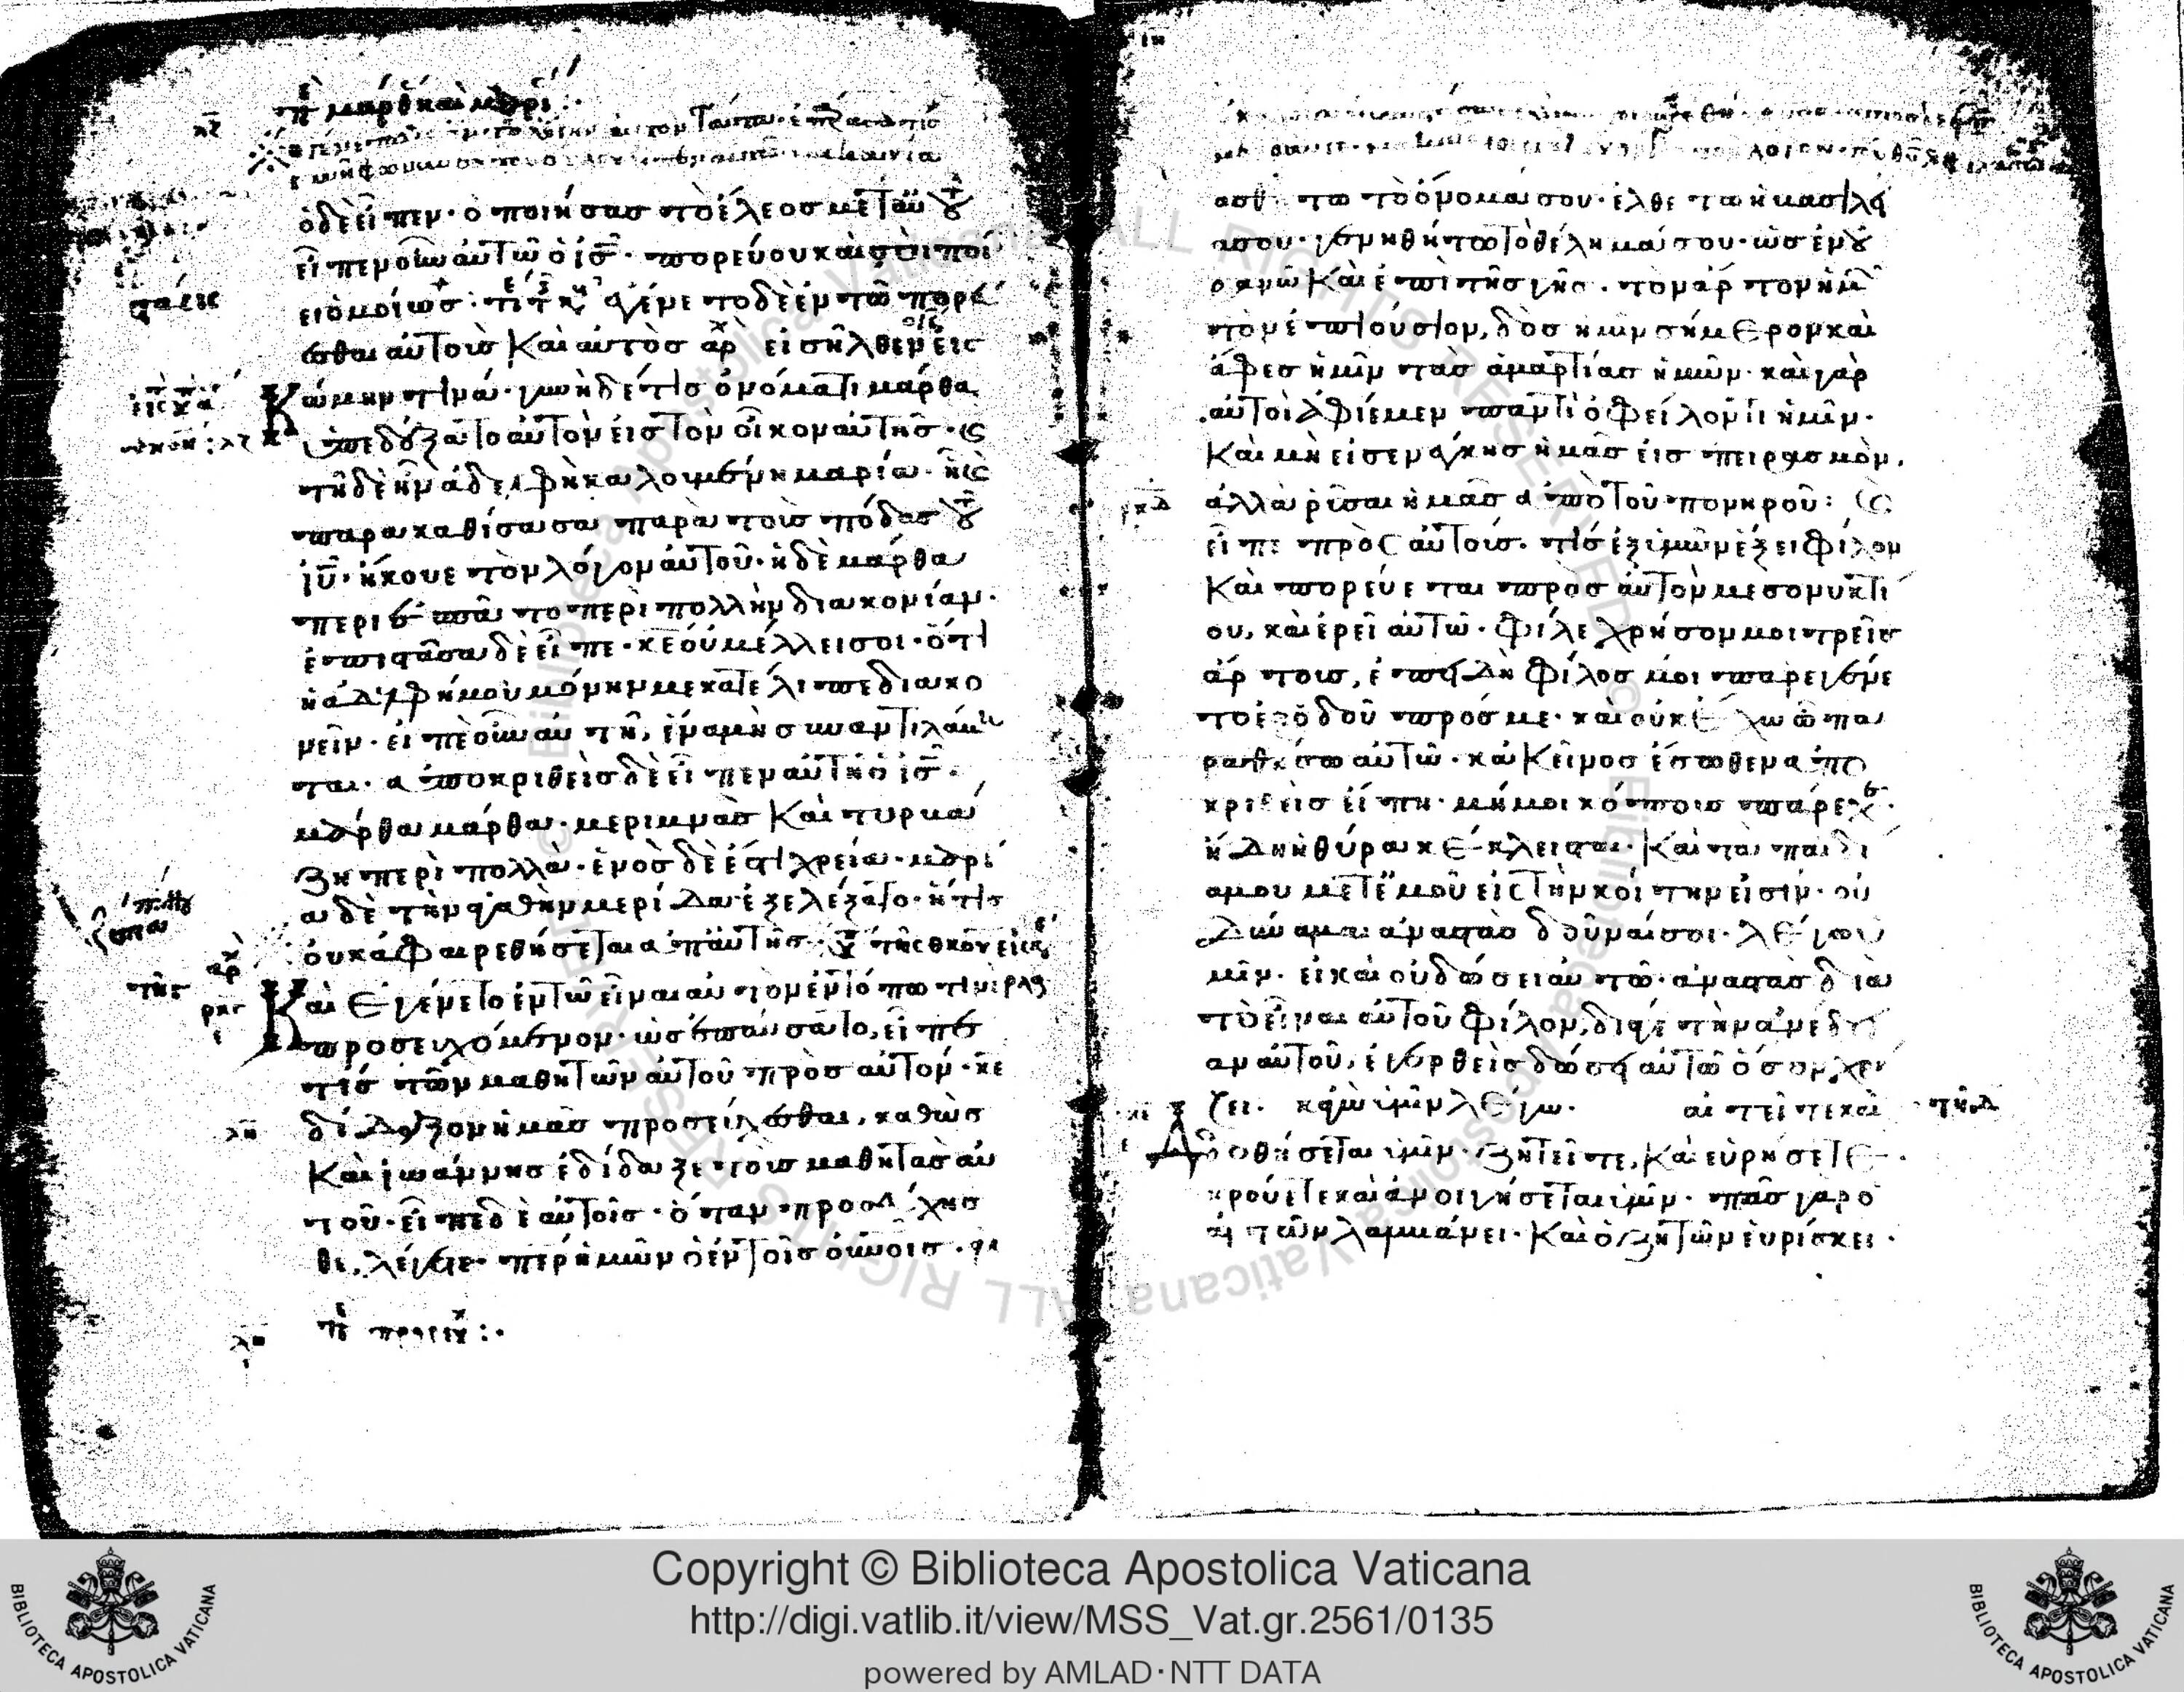 ὁ δὲ εἶπεν· ὁ ποιήσας τὸ ἔλεος μετ αὐτοῦ
εἶπεν οὖν αὐτῶ ὁ ις̅· πορεύου καὶ σὺ ποί
ει ὁμοίως: ἐγένετο δὲ ἐν τῶ πορεύ
εσθαι αὐτοὺς καὶ αὐτὸς εἰσῆλθεν εἰς
κώμην τινά· γυνὴ δέ τις ὀνόματι μάρθα
ὑπεδέξατο αὐτὸν εἰς τὸν οἶκον αὐτῆς· καὶ
τῆδε ἦν ἀδελφὴ καλουμένη μαρία· ἣ καὶ
παρακαθίσασα παρὰ τοὺς πόδας τοῦ
ιυ̅· ἤκουε τὸν λόγον αὐτοῦ· ἡ δὲ μάρθα
περιεσπᾶτο περὶ πολλὴν διακονίαν·
ἐπιστᾶσα δὲ εἶπε· κε̅ οὐ μέλλει σοι· ὅτι
ἡ ἀδελφή μου μόνην με κατέλιπε διακο
νεῖν· εἰπὲ οὖν αὐτῆ, ἵνα μὴ συναντιλάβη
ται· ἀποκριθεὶς δὲ εἶπεν αὐτῆ ὁ ις̅·
μάρθα μάρθα· μεριμνᾶς καὶ τυρβά
ζη περὶ πολλὰ· ἑνὸς δὲ ἐστὶ χρεία· μαρί
α δὲ τὴν ἀγαθὴν μερίδα ἐξελέξατο· ἥτις
οὐκ ἀφαιρεθήσεται ἀπ αὐτῆς·
Καὶ ἐγένετο ἐν τῶ εἶναι αὐτὸν ἐν τόπω τινὶ
προσευχόμενον· ὡς ἐπαύσατο, εἶπέ
τίς τῶν μαθητῶν αὐτοῦ πρὸς αὐτόν· κε̅
δίδαξον ἡμᾶς προσεύχεσθαι, καθὼς
καὶ ἰωάννης ἐδίδαξε τοὺς μαθητὰς αὐ
τοῦ· εἶπε δὲ αὐτοῖς· ὅταν προσεύχησ
θε, λέγετε· περ ἡμῶν ὁ ἐν τοῖς οὐνοις· ἁγι
ασθήτω τὸ ὄνομά σου· ἐλθέτω ἡ βασιλεί
α σου· γενηθήτω τὸ θέλημά σου· ὡς ἐν οὐ
ρανῶ καὶ ἐπὶ τῆς γῆς. τὸν ἄρτον ἡμῶν
τὸν ἐπιούσιον, δὸς ἡμῖν σήμερον καὶ
ἄφες ἡμῖν τὰς ἁμαρτίας ἡμῶν· καὶ γὰρ
αὐτοὶ ἀφίεμεν παντὶ ὀφείλοντι ἡμῖν·
Καὶ μὴ εἰσενέγκης ἡμᾶς εἰς πειρασμὸν.
ἀλλὰ ῥῦσαι ἡμᾶς ἀπὸ τοῦ πονηροῦ: καὶ
εἶπε πρὸς αὐτούς· τίς ἐξ ὑμῶν ἕξει φίλον
Καὶ πορεύεται πρὸς αὐτὸν μεσονυκτί
ου, καὶ ἐρεῖ αὐτῶ· φίλε χρῆσόν μοι τρεῖς
ἄρτους, ἐπειδὴ φίλος μοι παρεγένε
το ἐξ ὁδοῦ πρός με· καὶ οὐκ ἔχω ὃ πα
ραθήσω αὐτῶ· κἀκεῖνος ἔσωθεν ἀπο
κριθεὶς εἴπη· μή μοι κόπους πάρεχε·
ἤδη ἡ θύρα κέκλεισται· Καὶ τὰ παιδί
α μου μετ ἐμοῦ εἰς τὴν κοίτην εἰσίν· οὐ
δύναμαι ἀναστὰς δοῦναί σοι· λέγω ὑ
μῖν· εἰ καὶ οὐ δώσει αὐτῶ· ἀναστὰς διὰ
τὸ εἶναι αὐτοῦ φίλον, διά γε τὴν ἀναίδει
αν αὐτοῦ, ἐγερθεὶς δώσει αὐτῶ ὅσων χρή
ζει. κἀγὼ ὑμῖν λέγω· αἰτεῖτε καὶ
Δοθήσεται ὑμῖν· ζητεῖτε, καὶ εὑρήσετε·
κρούετε καὶ ἀνοιγήσεται ὑμῖν· πᾶς γὰρ ὁ
αἰτῶν λαμβάνει· Καὶ ὁ ζητῶν εὑρίσκει·
Copyright © Biblioteca Apostolica Vaticana
http://digi.vatlib.it/view/MSS_Vat.gr.2561/0135
powered by AMLAD·NTT DATA
BIBLIOTECA APOSTOLICA VATICANA
BIBLIOTECA APOSTOLICA VATICANA